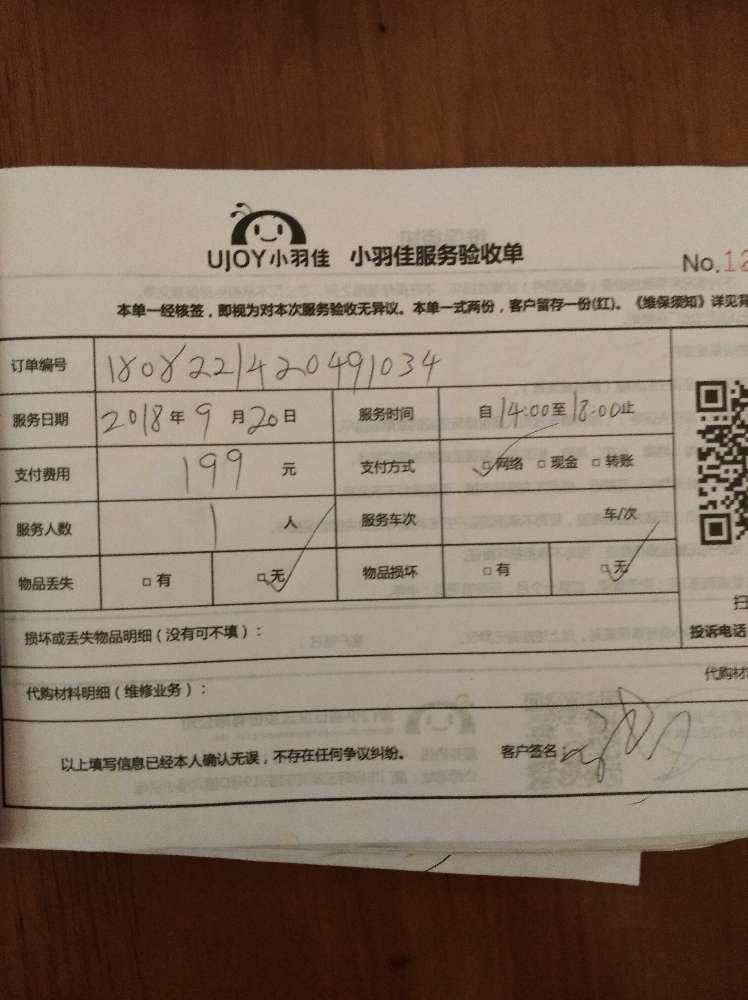 UJOY小羽佳 小羽佳服务验收单
No.12
本单一经核签，即视为对本次服务验收无异议。本单一式两份，客户留存一份(红)。《维保须知》详见背
订单编号 180822142049​1034
服务日期 2018年9月20日 服务时间 自14:00至18:00止
支付费用 199 元 支付方式 □网络 □现金 □转账
服务人数 1 人 服务车次 车/次
物品丢失 □有 □无 物品损坏 □有 □无
扫
损坏或丢失物品明细（没有可不填）： 投诉电话
代购材料明细（维修业务）： 代购材
以上填写信息已经本人确认无误，不存在任何争议纠纷。 客户签名：